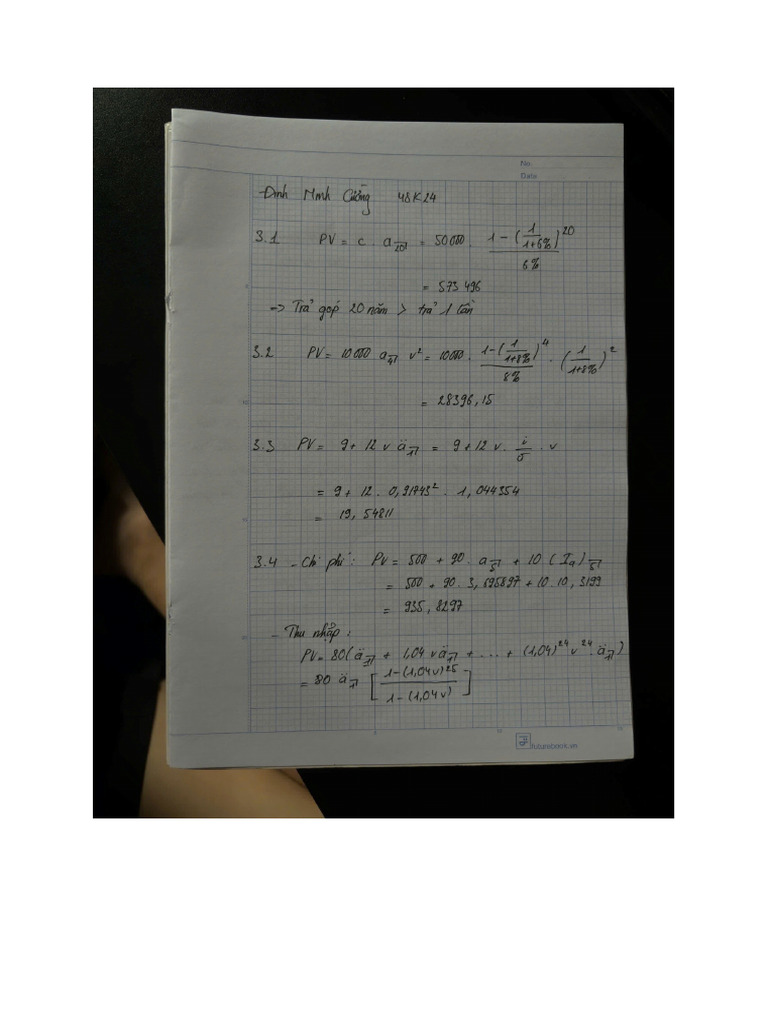 No.
Date
Đinh Minh Cường 48K24
3.1 PV = c . a20̅| = 50000 . (1 - (1/(1+6%))^20)/6%
= 573 496
=> Trả góp 20 năm > trả 1 lần
3.2 PV = 10000 a4̅| v² = 10000 . (1 - (1/(1+8%))^4)/8% . (1/(1+8%))^2
= 28396,15
3.3 PV = 9 + 12 v ä1̅| = 9 + 12 v . i/δ . v
= 9 + 12 . 0,91743² . 1,044354
= 19,54811
3.4 - Chi phí : PV = 500 + 90 . a5̅| + 10 (Ia)5̅|
= 500 + 90 . 3,695897 + 10 . 10,3199
= 935,8297
- Thu nhập :
PV = 80 (ä1̅| + 1,04 v ä1̅| + ... + (1,04)^24 v^24 . ä1̅|)
= 80 . ä1̅| [(1 - (1,04v)^25)/(1 - (1,04v))]
futurebook.vn